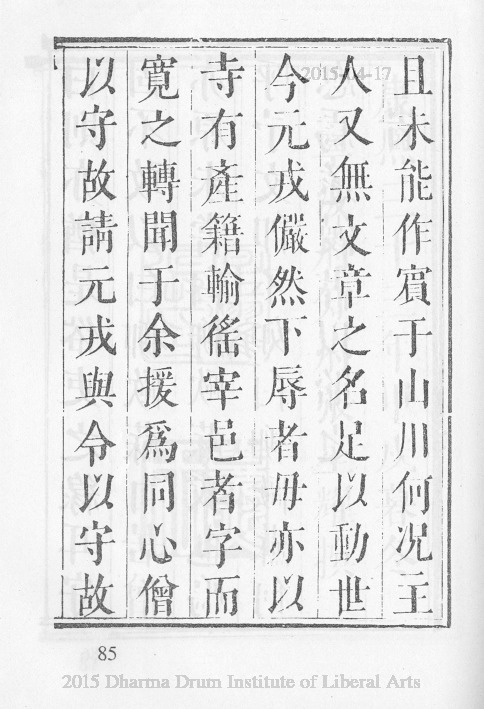 且未能作賓于山川何况主
人又無文章之名足以動世
今元戎儼然下辱者毋亦以
寺有產籍輸徭宰邑者字而
寬之轉聞于余援爲同心僧
以守故請元戎與令以守故
85
2015-04-17
2015 Dharma Drum Institute of Liberal Arts